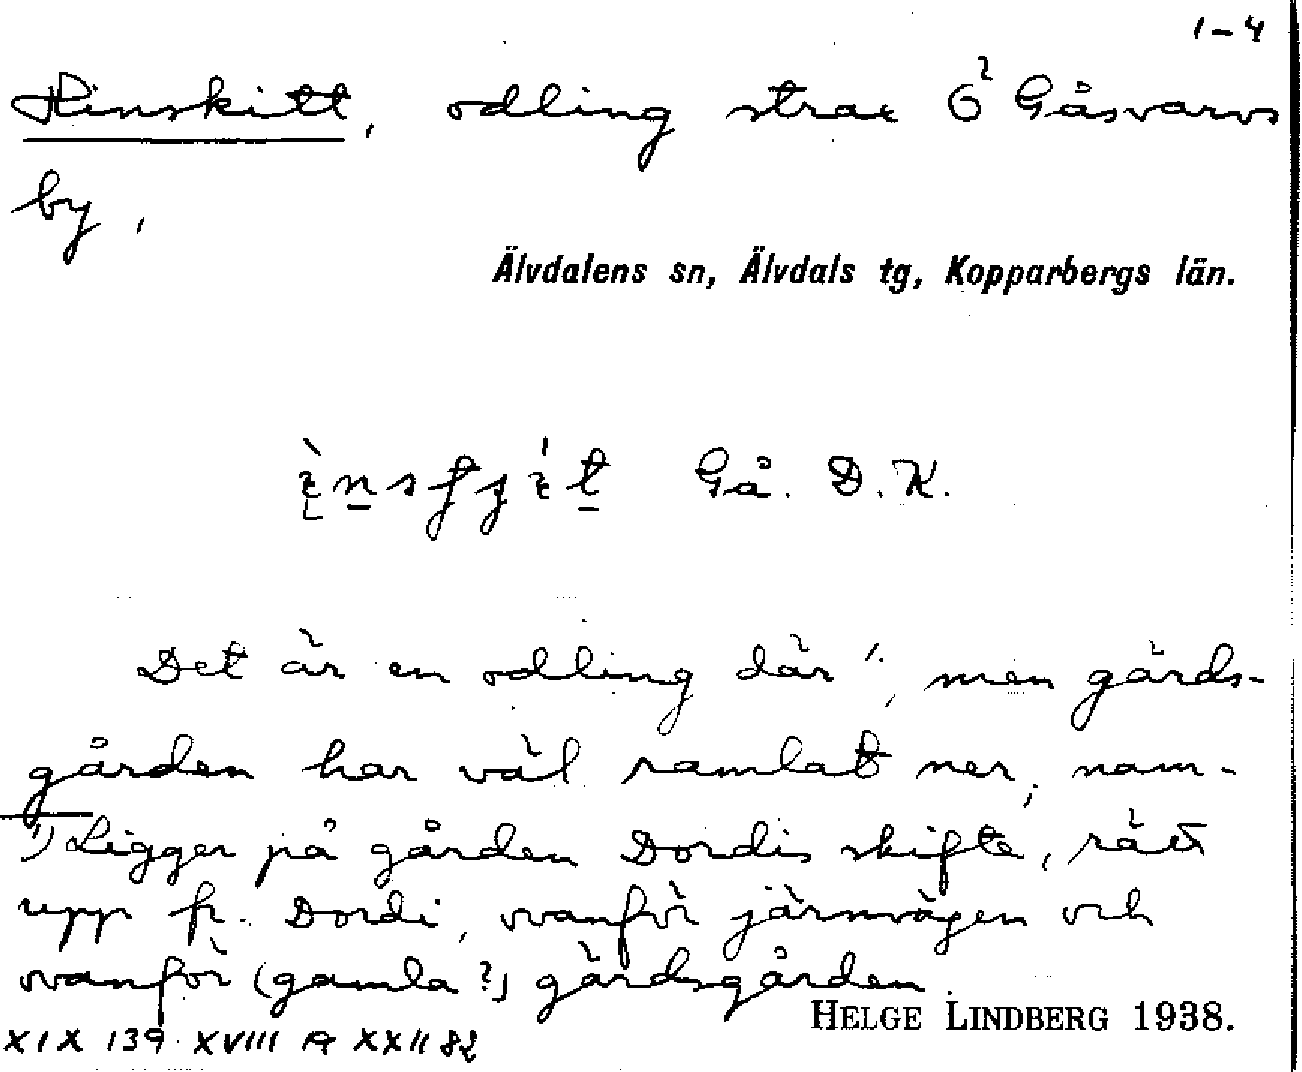 1-4
Hinskitt, odling strax Ö Gåsvarvs
by,
Älvdalens sn, Älvdals tg, Kopparbergs län.
Gå. D. K.
Det är en odling där ¹, men gärds-
gården har väl ramlat ner; nam-
¹) Ligger på gården Dordis skifte, rätt
upp fr. Dordi, ovanför järnvägen och
ovanför (gamla?) gärdsgården.
HELGE LINDBERG 1938.
XIX 139 XVIII A XXII 82